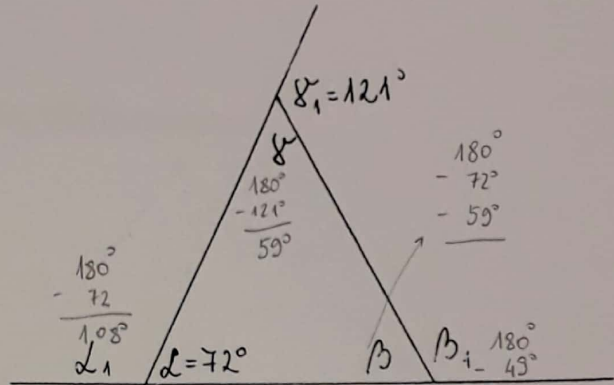 γ₁ = 121°
γ
180°
- 121°
59°
180°
- 72°
- 59°
180°
- 72
108°
α₁
α = 72°
β
β₁
180°
- 49°